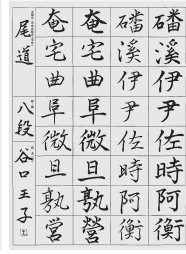 磻溪伊尹佐時阿衡
磻溪伊尹佐時阿衡
奄宅曲阜微旦孰營
奄宅曲阜微旦孰営
尾道 八段 谷口王子